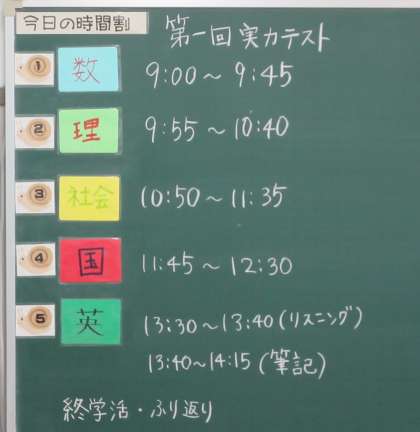 今日の時間割 第一回実力テスト
① 数 9:00〜9:45
② 理 9:55〜10:40
③ 社会 10:50〜11:35
④ 国 11:45〜12:30
⑤ 英 13:30〜13:40(リスニング)
13:40〜14:15(筆記)
終学活・ふり返り